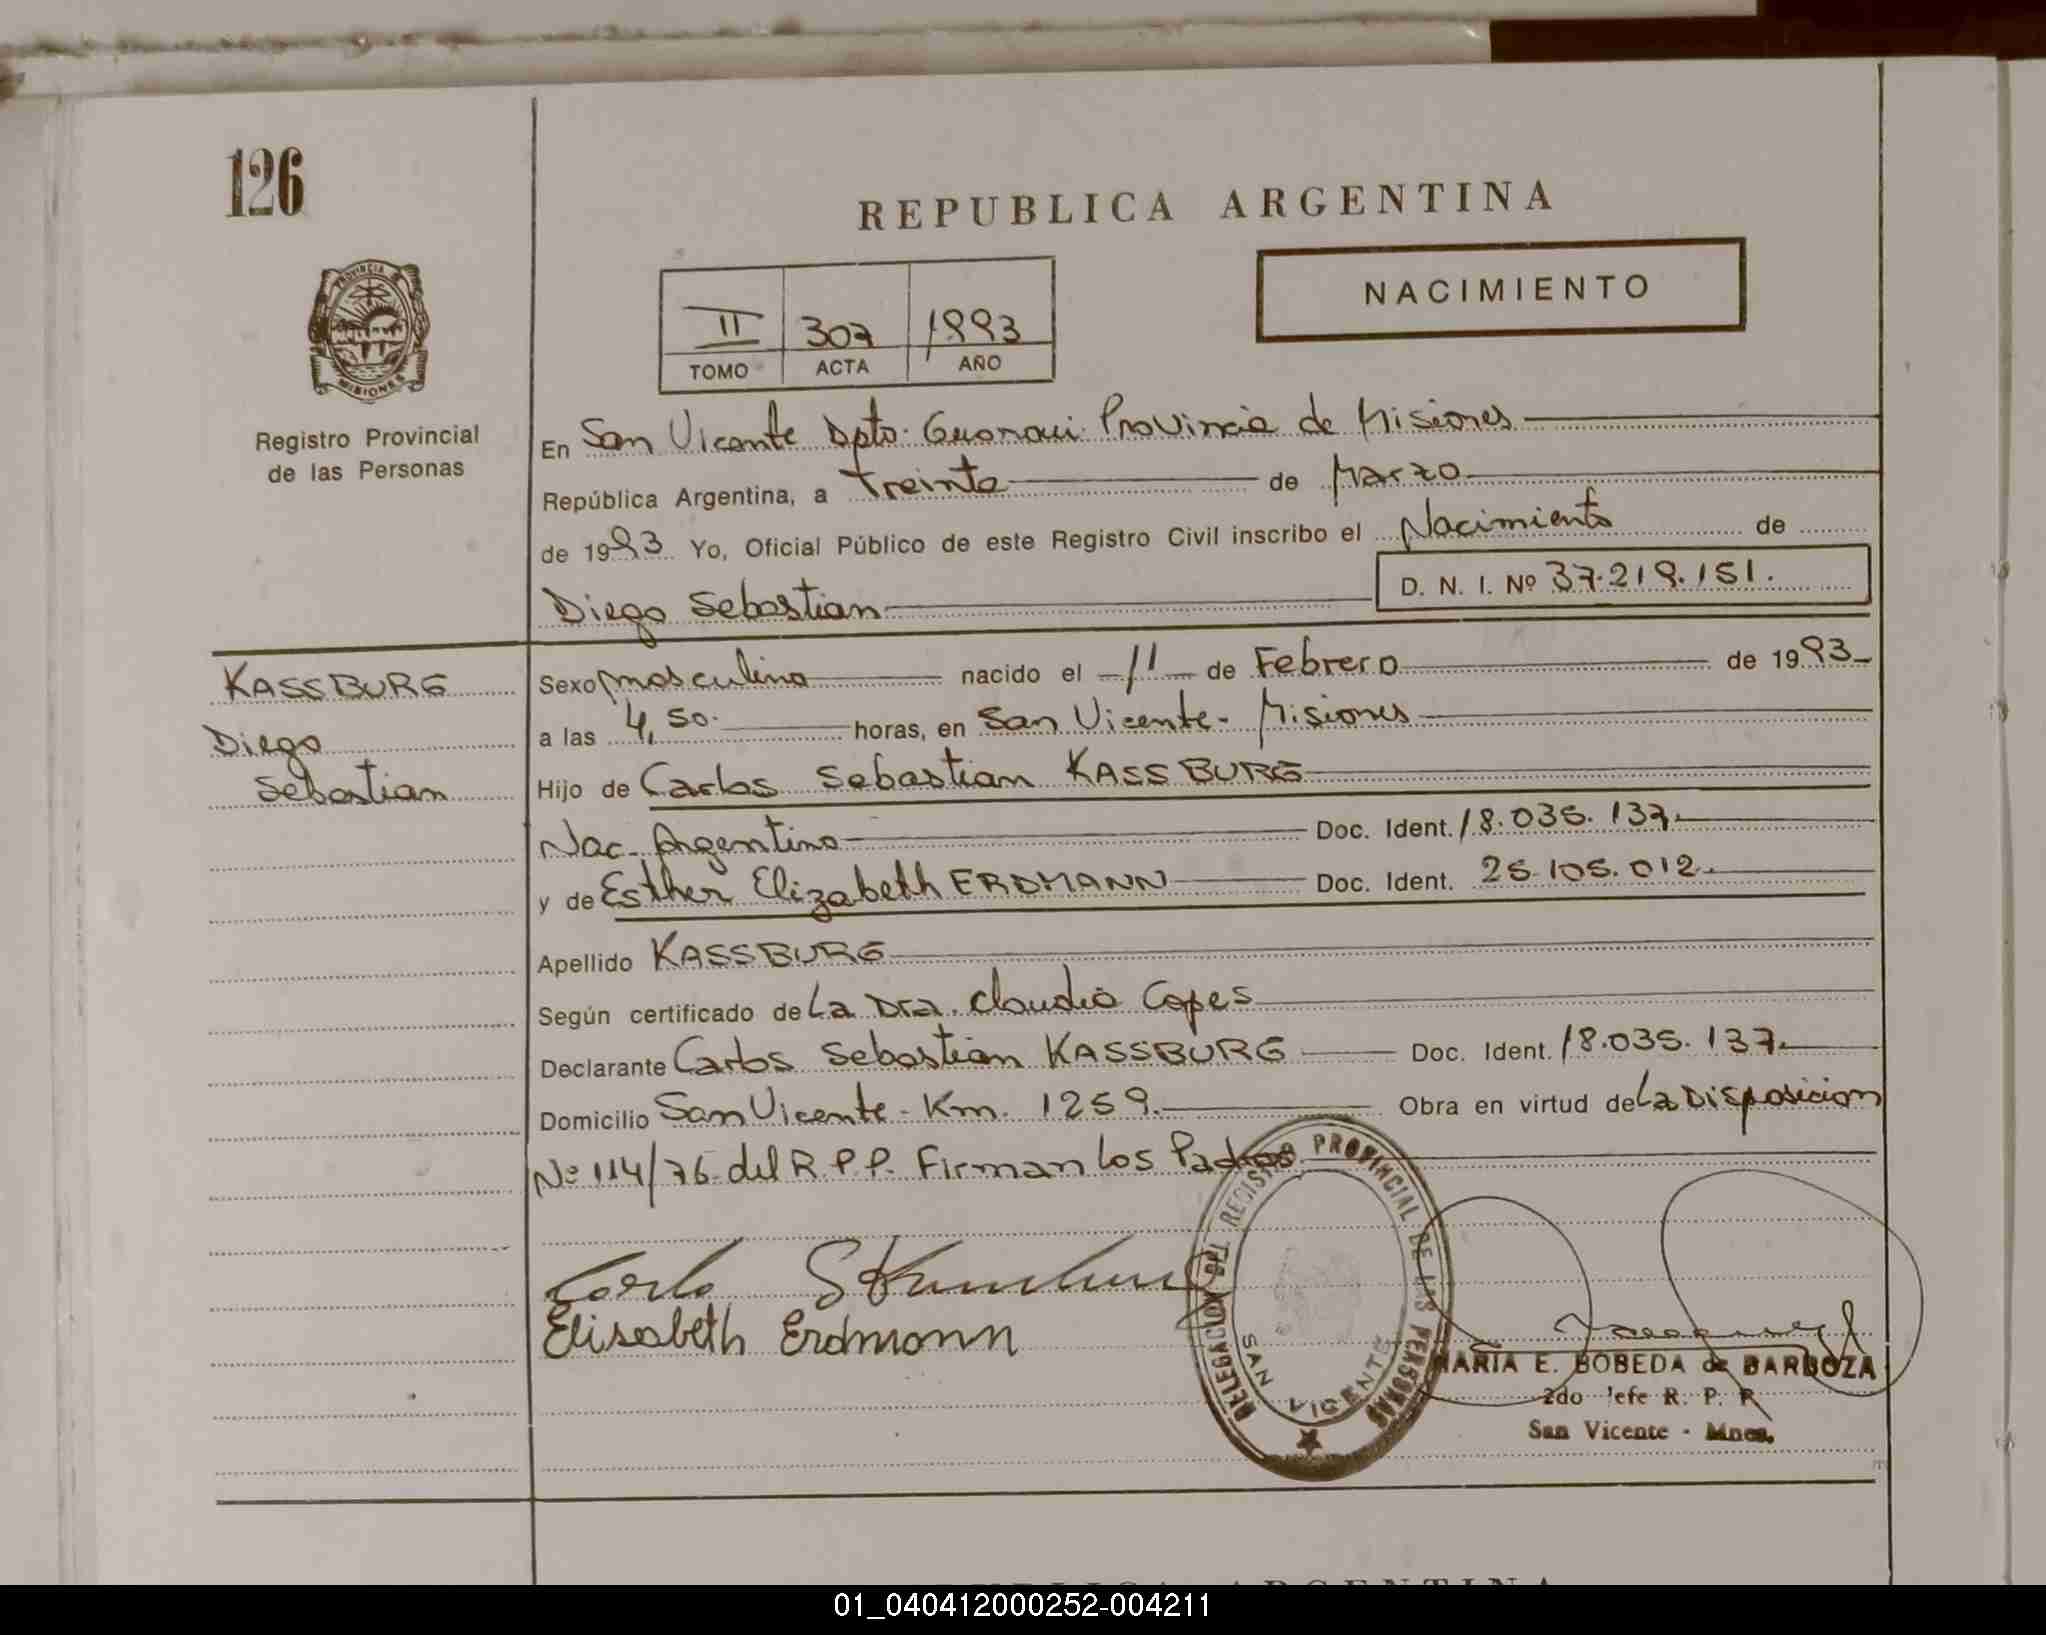 126
REPUBLICA ARGENTINA
NACIMIENTO
II 307 1993
TOMO ACTA AÑO
PROVINCIA DE MISIONES
Registro Provincial
de las Personas
En San Vicente Dpto. Guarani Provincia de Misiones
República Argentina, a treinta de Marzo
de 1993 Yo, Oficial Público de este Registro Civil inscribo el Nacimiento de
D. N. I. Nº 37.219.151.
Diego Sebastian
KASSBURG
Diego
Sebastian
Sexo masculino nacido el 11 de Febrero de 1993
a las 4,50. horas, en San Vicente - Misiones
Hijo de Carlos Sebastian KASSBURG
Nac. Argentino Doc. Ident. 18.035.137.
y de Esther Elizabeth ERDMANN Doc. Ident. 25.105.012.
Apellido KASSBURG
Según certificado de La Dra. Claudia Copes
Declarante Carlos Sebastian KASSBURG Doc. Ident. 18.035.137.
Domicilio San Vicente - Km. 1259. Obra en virtud de La Disposicion
Nº 114/76 del R.P.P. Firman Los Padres
Carlo S
Elisabeth Erdmann
DELEGACION DEL REGISTRO PROVINCIAL DE LAS PERSONAS
SAN VICENTE
MARIA E. BOBEDA de BARBOZA
2do Jefe R. P. P.
San Vicente - Mnes.
01_040412000252-004211